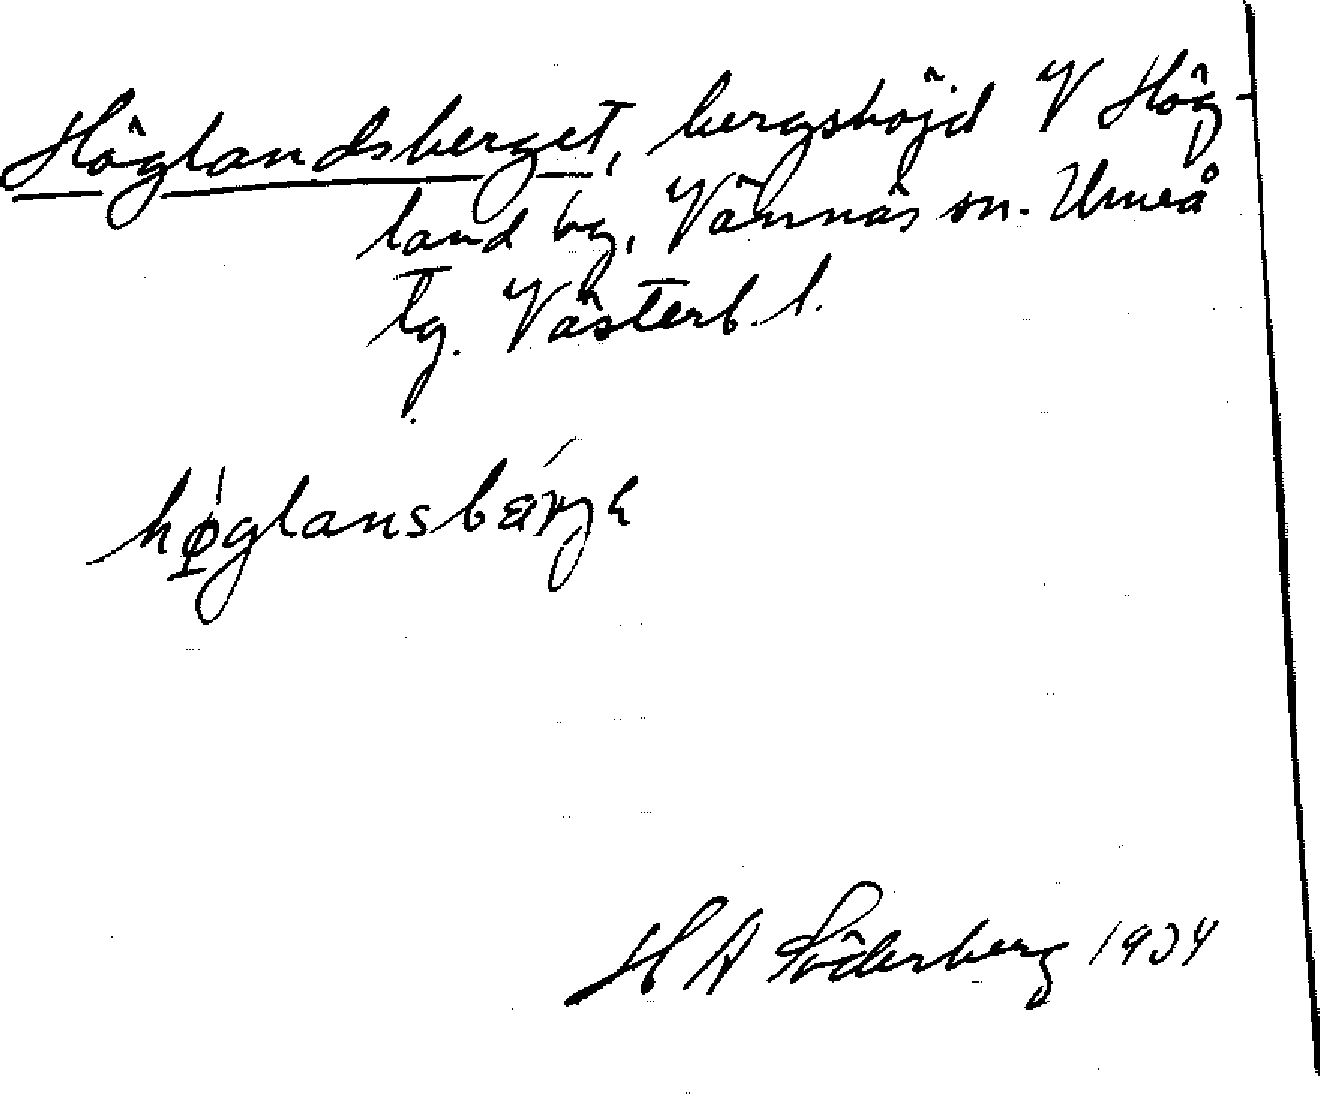 Höglandsberget, bergshöjd V Hög-
land by, Vännäs sn. Umeå
tg. Västerb. l.
hø̀glansbärjə
H A Söderberg 1934